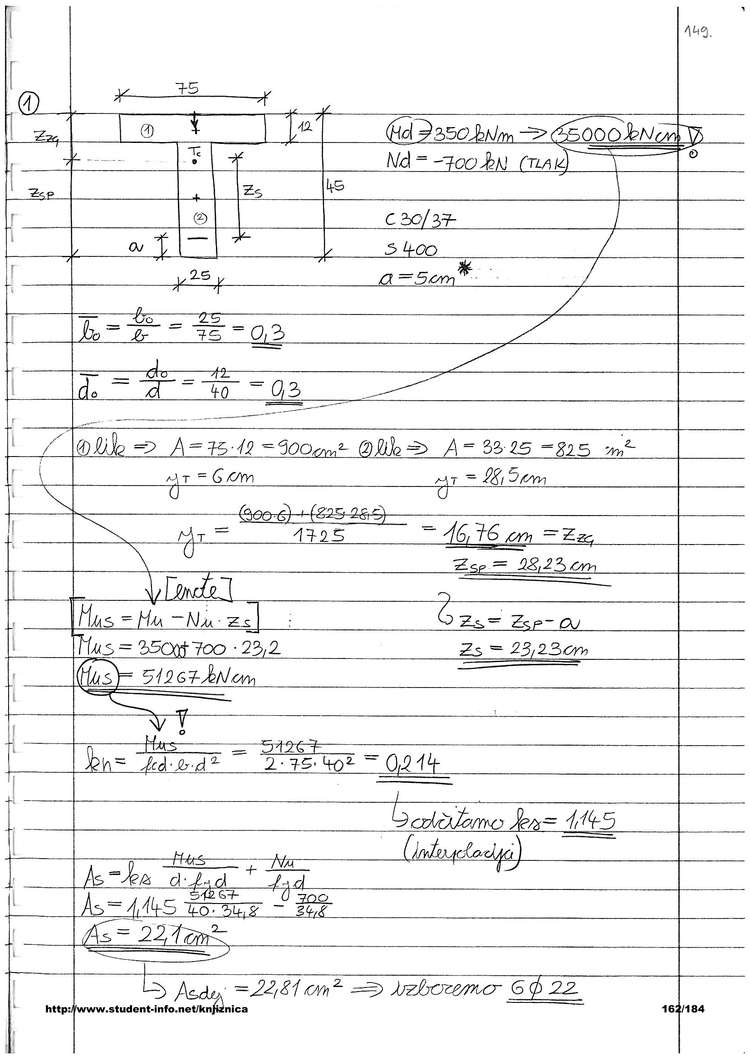 149.
①
75
12
45
25
①
②
Tc
Zzg
Zsp
Zs
a
Md = 350 kNm → 35000 kNcm !
Nd = -700 kN (TLAK)
C 30/37
S 400
a = 5cm *
b̅₀ = b₀/b = 25/75 = 0,3
d̅₀ = d₀/d = 12/40 = 0,3
① lik ⇒ A = 75·12 = 900 cm² ② lik ⇒ A = 33·25 = 825 m²
yT = 6 cm yT = 28,5 cm
yT = (900·6) + (825·28,5) / 1725 = 16,76 cm = Zzg
Zsp = 28,23 cm
[enote]
[Mus = Mu - Nu · zs]
zs = zsp - a
Mus = 35000 + 700 · 23,2
zs = 23,23 cm
Mus = 51267 kNcm
!
kn = Mus / fcd · b · d² = 51267 / 2 · 75 · 40² = 0,214
↳ odčitamo ks = 1,145
(interpolacija)
As = ks Mus / d · fyd + Nu / fyd
As = 1,145 51267 / 40 · 34,8 - 700 / 34,8
As = 22,1 cm²
↳ Asdej = 22,81 cm² ⇒ izberemo 6 ϕ 22
http://www.student-info.net/knjiznica
162/184